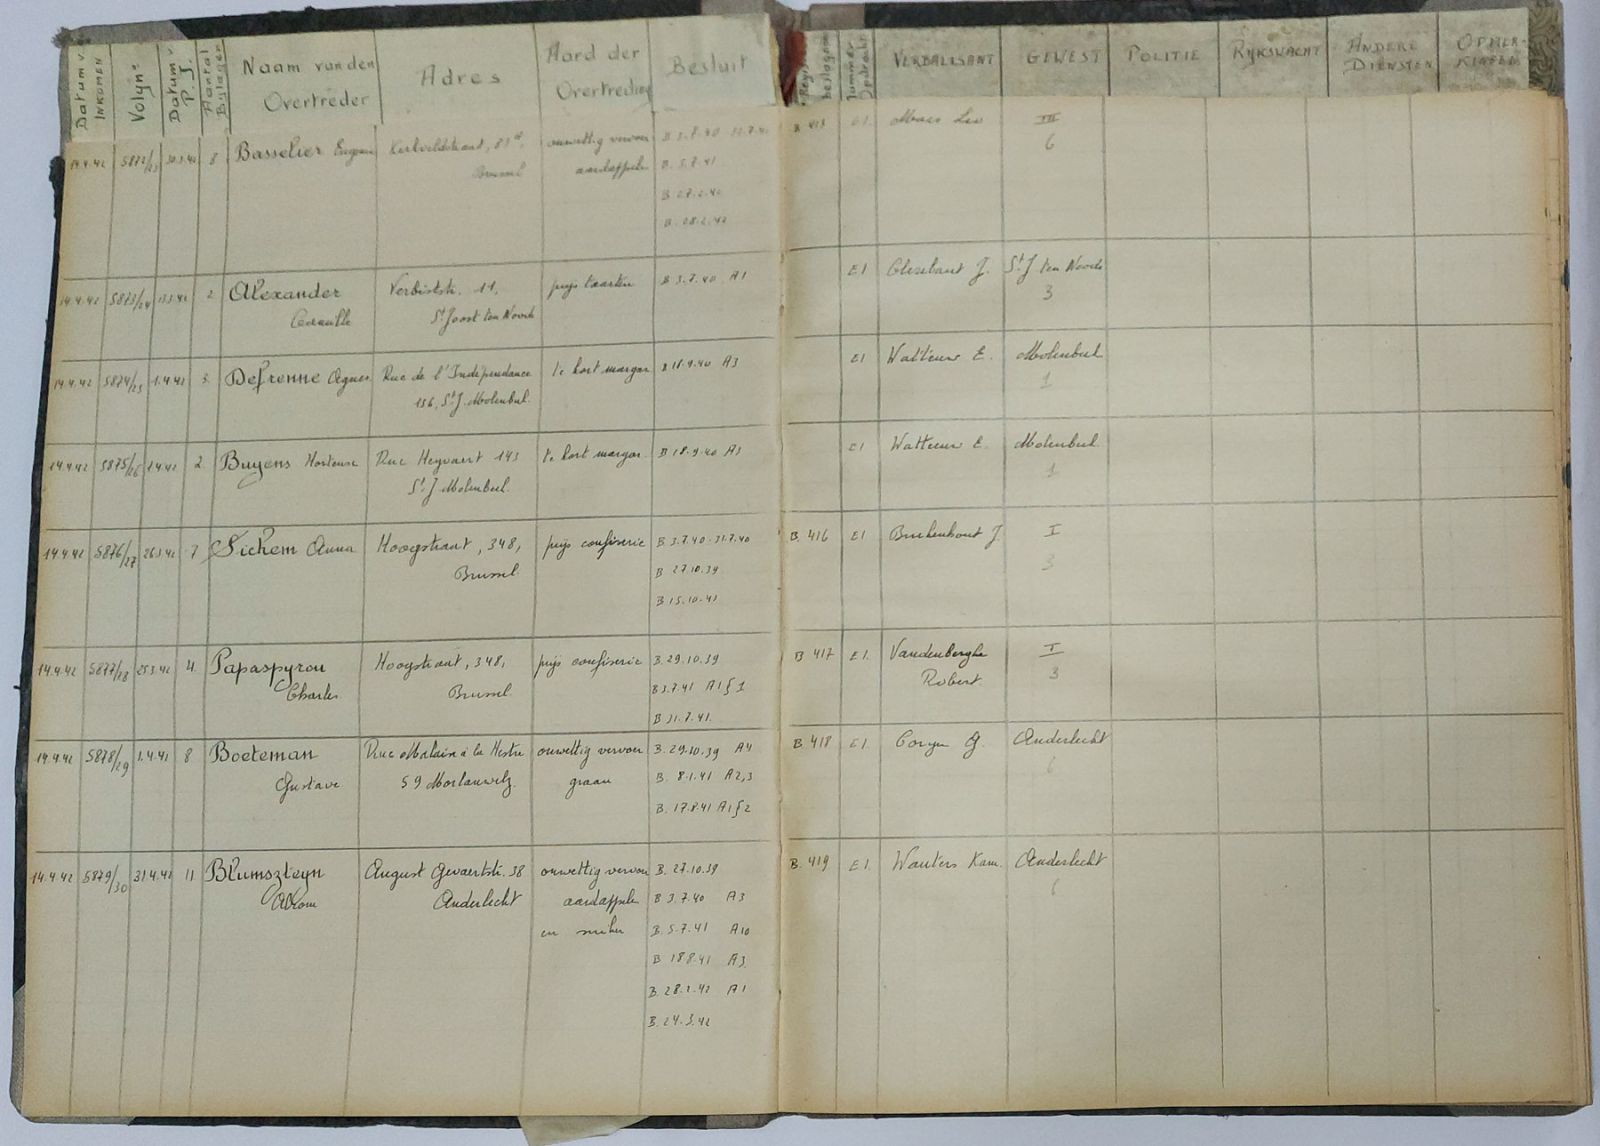 Datum v. Inkomen
Volgn°
Datum P.J.
Aantal Bijlagen
Naam van den Overtreder
Adres
Aard der Overtreding
Besluit
beslagen
Nummer Opdracht
Verbalisant
Gewest
Politie
Rijkswacht
Andere Diensten
Opmerkingen
14.4.42 5872/23 8 Basselier Eugeen Kerkveldstraat, 81 onwettig vervoer B 3.7.40 31.7.40 B 413 E1. Maes Leo III
Brussel aardappelen B. 5.7.41 6
B 27.2.42
B. 28.2.42
14.4.42 5873/24 2 Alexander Verbistst. 11, prijs taarten B 3.7.40 A1 E1 J. St J ten Noode
Camille St Joost ten Noode 3
14.4.42 5874/25 1.4.42 3 Defrenne Agnes Rue de l'Indépendance te kort margar B 18.9.40 A3 E1 Wattieuw E. Molenbeek
136, St J. Molenbeek 1
14.4.42 5875/26 2.4.42 2 Buyens Hortense Rue Heyvaert 143 te kort margar. B 18.9.40 A3 E1 Wattieuw E. Molenbeek
St J Molenbeek 1
14.4.42 5876/27 26.3.42 7 Sichem Anna Hoogstraat, 348, prijs confiserie B 3.7.40-31.7.40 B. 416 E1 Buekenhout J. I
Brussel B 27.10.39 3
B 15.10.41
14.4.42 5877/28 25.3.42 4 Papaspyrou Hoogstraat, 348, prijs confiserie B. 29.10.39 B 417 E1. Vandenberghe I
Charles Brussel B 3.7.41 A1 § 1 Robert 3
B 31.7.41
14.4.42 5878/29 1.4.41 8 Boeteman Rue Malaise à la Hestre onwettig vervoer B. 29.10.39 A4 B 418 E1. G. Anderlecht
Gustave 59 Morlanwelz graan B. 8.1.41 A2,3 6
B. 17.8.41 A1 § 2
14.4.42 5879/30 31.4.42 11 Blumszteyn August Gevaertstr. 38 onwettig vervoer B. 27.10.39 B. 419 E1. Wauters Kam. Anderlecht
Abram Anderlecht aardappelen B 3.7.40 A3 6
en suiker B. 5.7.41 A10
B 18.8.41 A3
B. 28.2.42 A1
B. 24.3.42